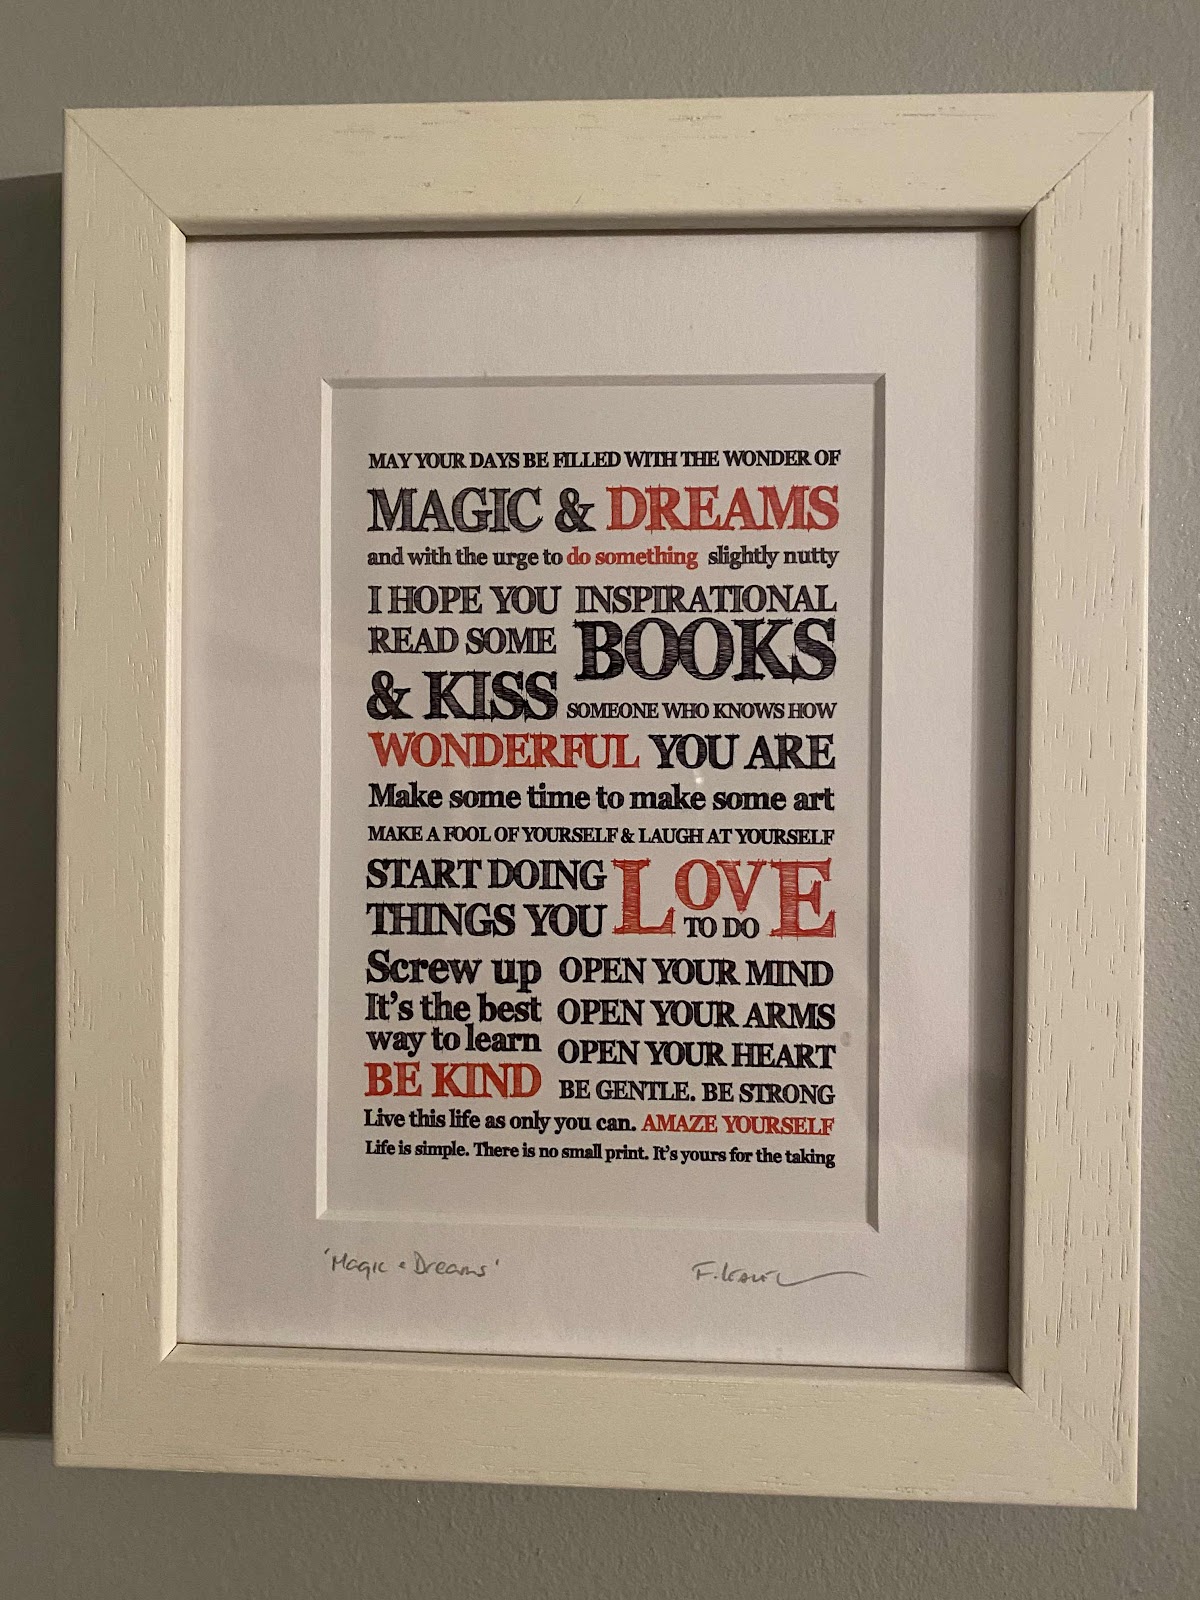 MAY YOUR DAYS BE FILLED WITH THE WONDER OF
MAGIC & DREAMS
and with the urge to do something slightly nutty
I HOPE YOU
READ SOME
INSPIRATIONAL
BOOKS
& KISS
SOMEONE WHO KNOWS HOW
WONDERFUL YOU ARE
Make some time to make some art
MAKE A FOOL OF YOURSELF & LAUGH AT YOURSELF
START DOING
THINGS YOU
LOVE
TO DO
Screw up
It's the best
way to learn
BE KIND
OPEN YOUR MIND
OPEN YOUR ARMS
OPEN YOUR HEART
BE GENTLE. BE STRONG
Live this life as only you can. AMAZE YOURSELF
Life is simple. There is no small print. It's yours for the taking
'Magic & Dreams'
F.